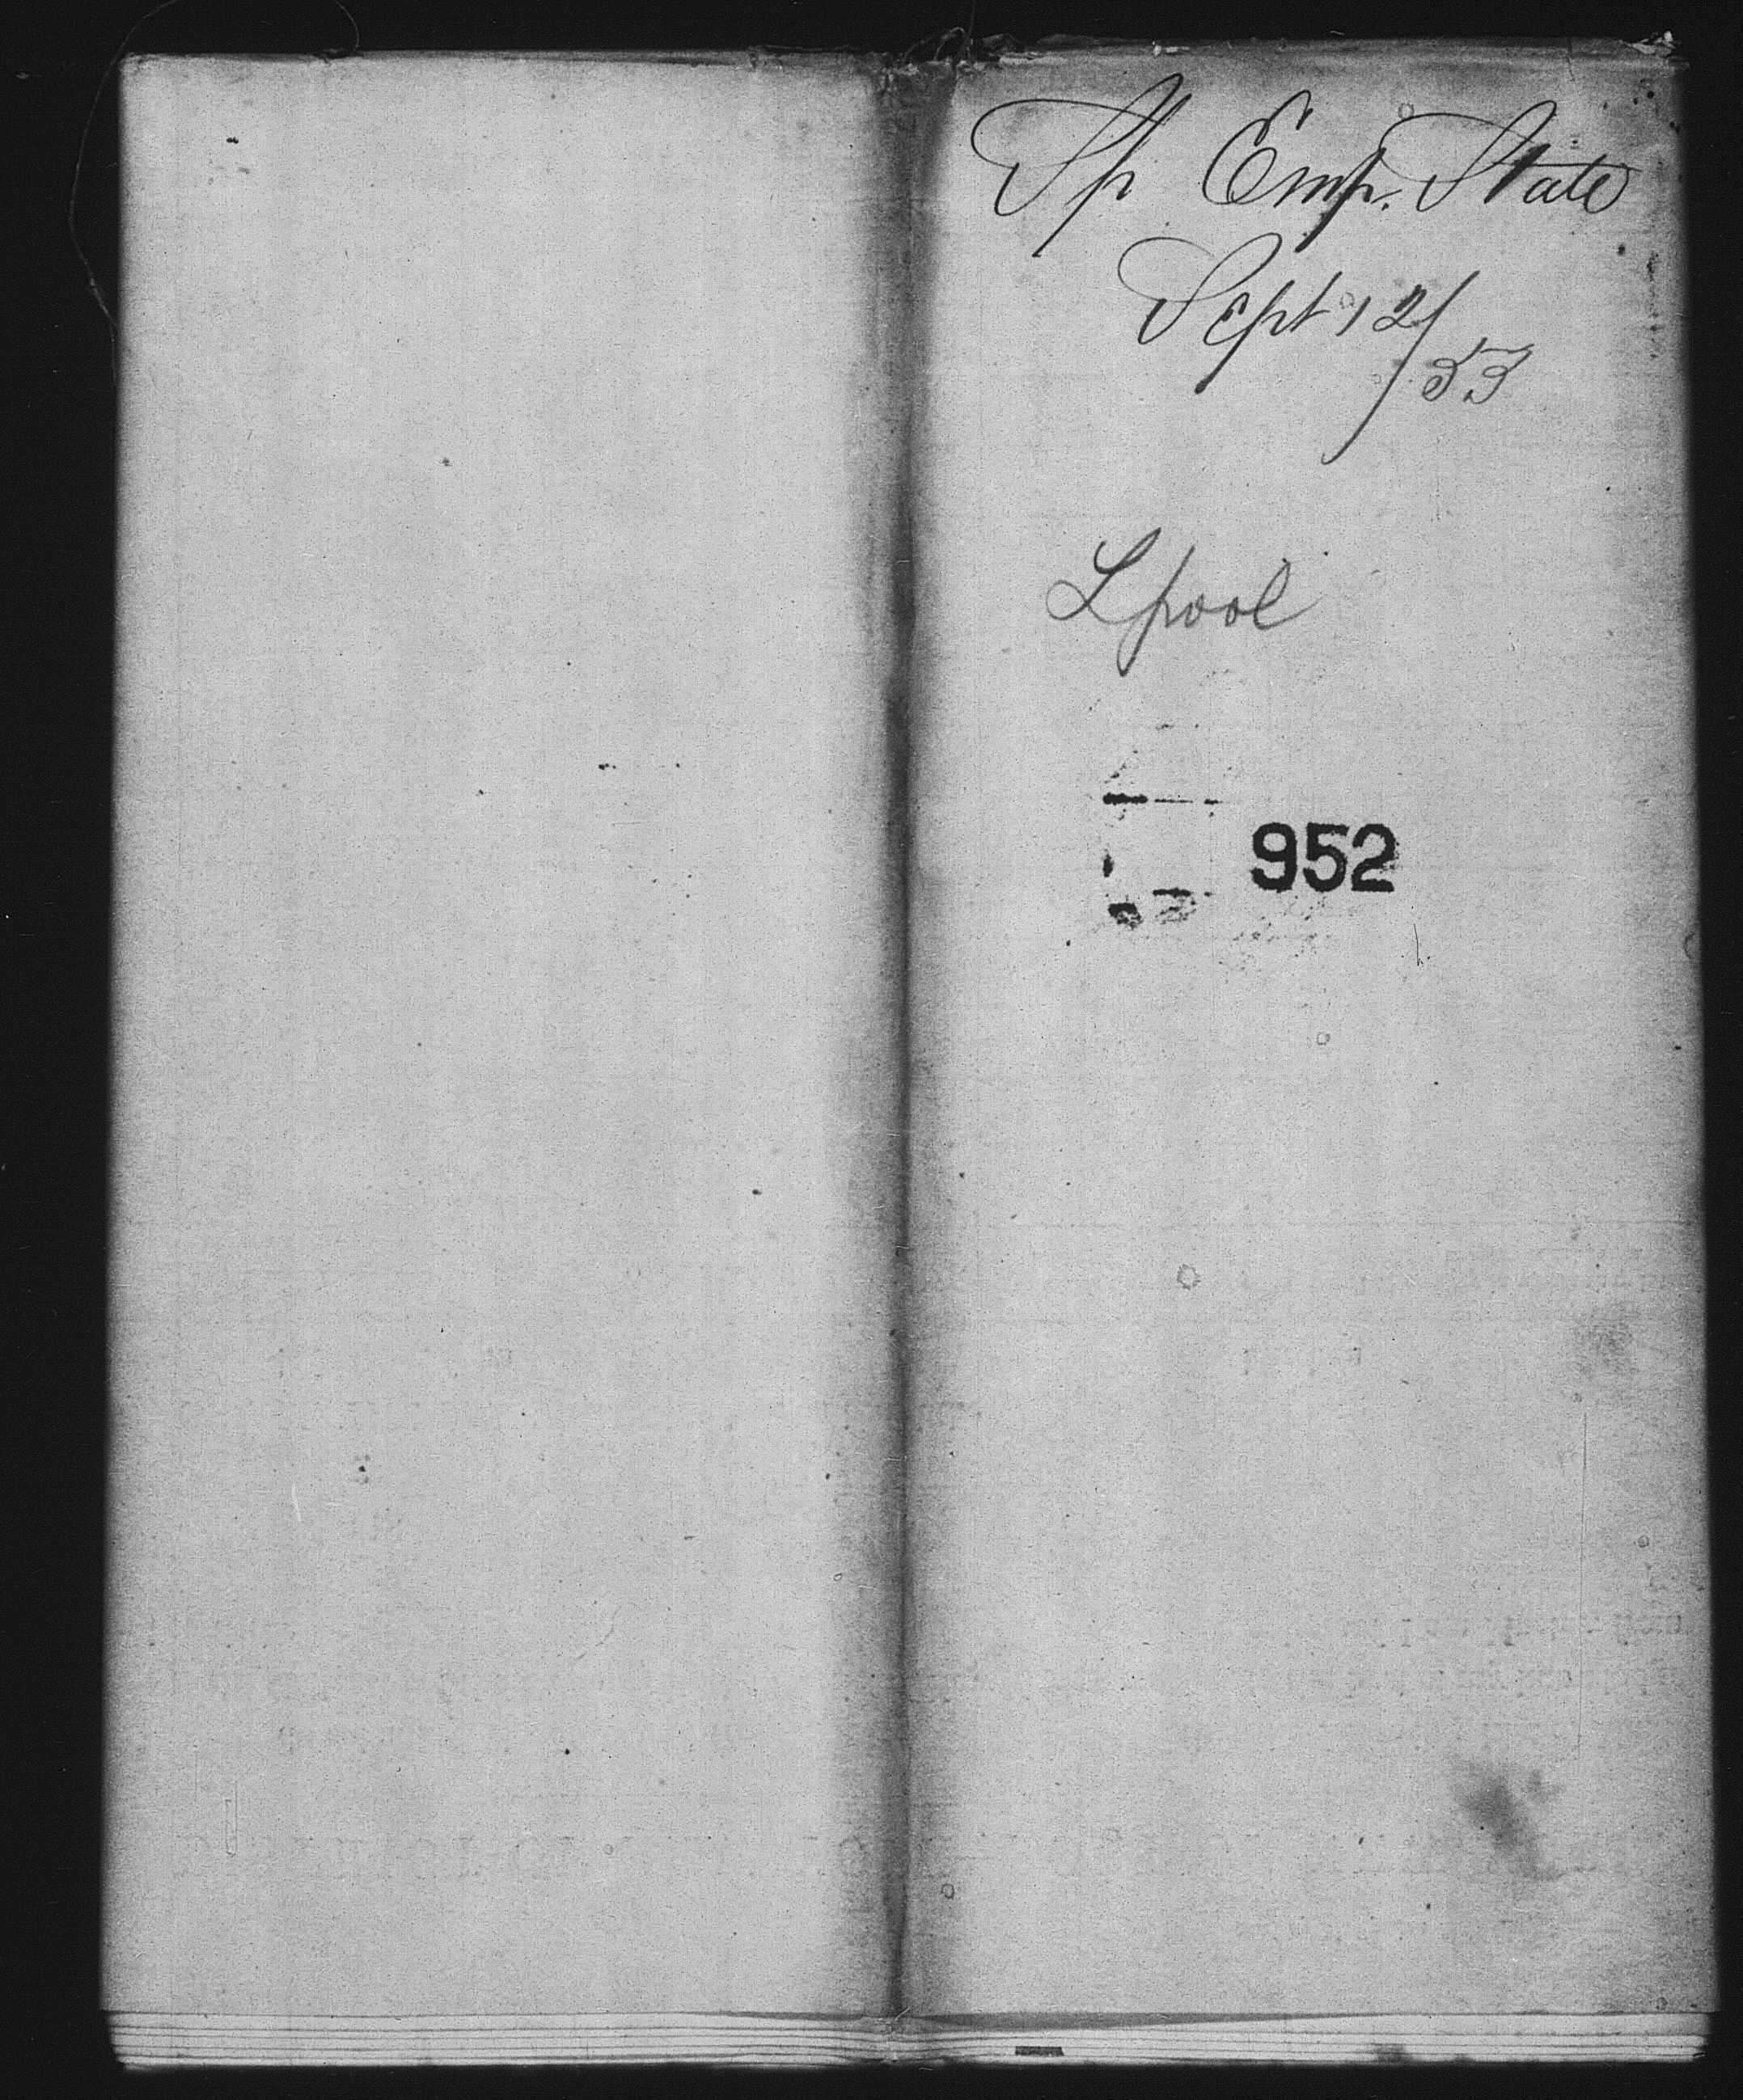 Sh Emp. State
Sept 12/
53
Lpool
952